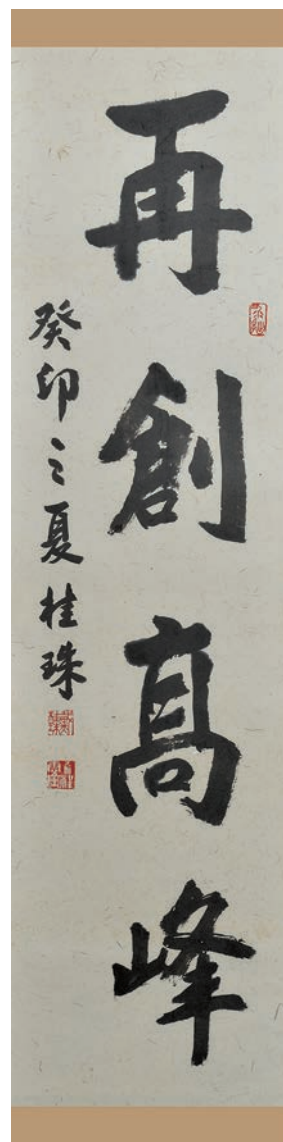 再創高峰
癸卯之夏桂珠